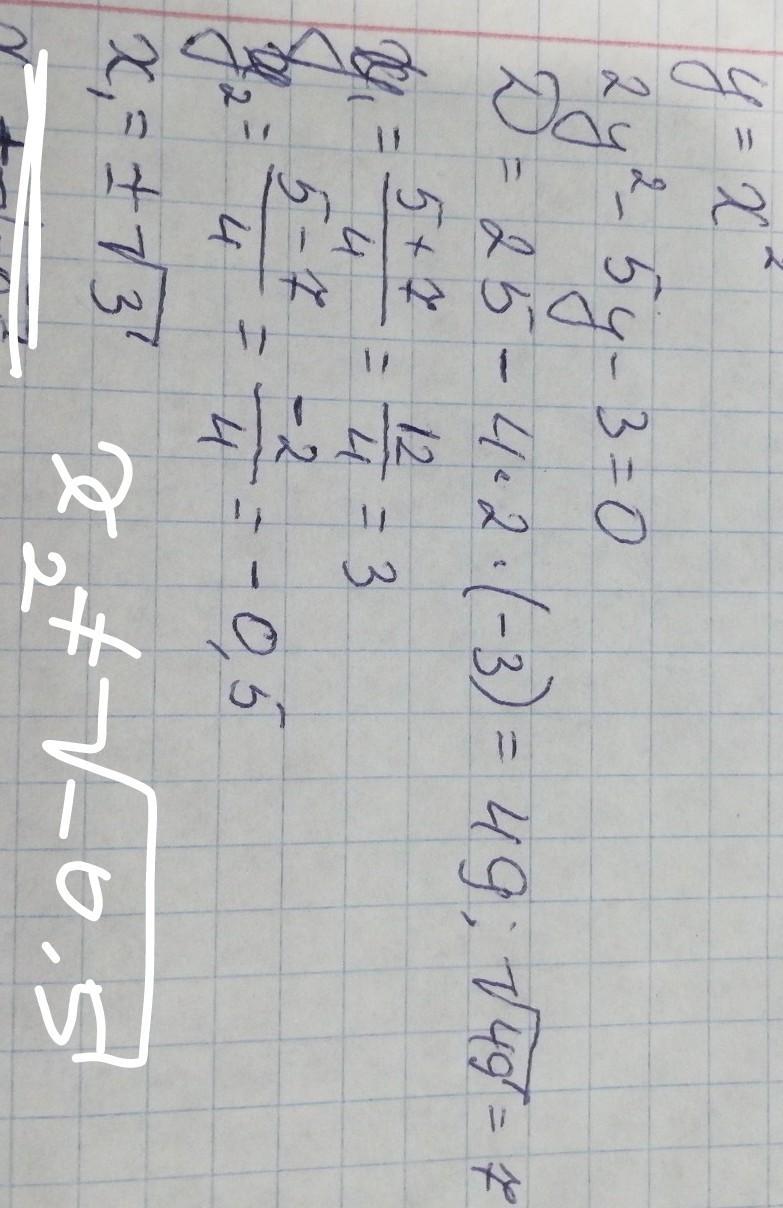 y = x²
2y² - 5y - 3 = 0
D = 25 - 4·2·(-3) = 49; √49 = 7
y₁ = (5+7)/4 = 12/4 = 3
y₂ = (5-7)/4 = -2/4 = -0,5
x₁ = ±√3
x₂ ≠ √-0.5